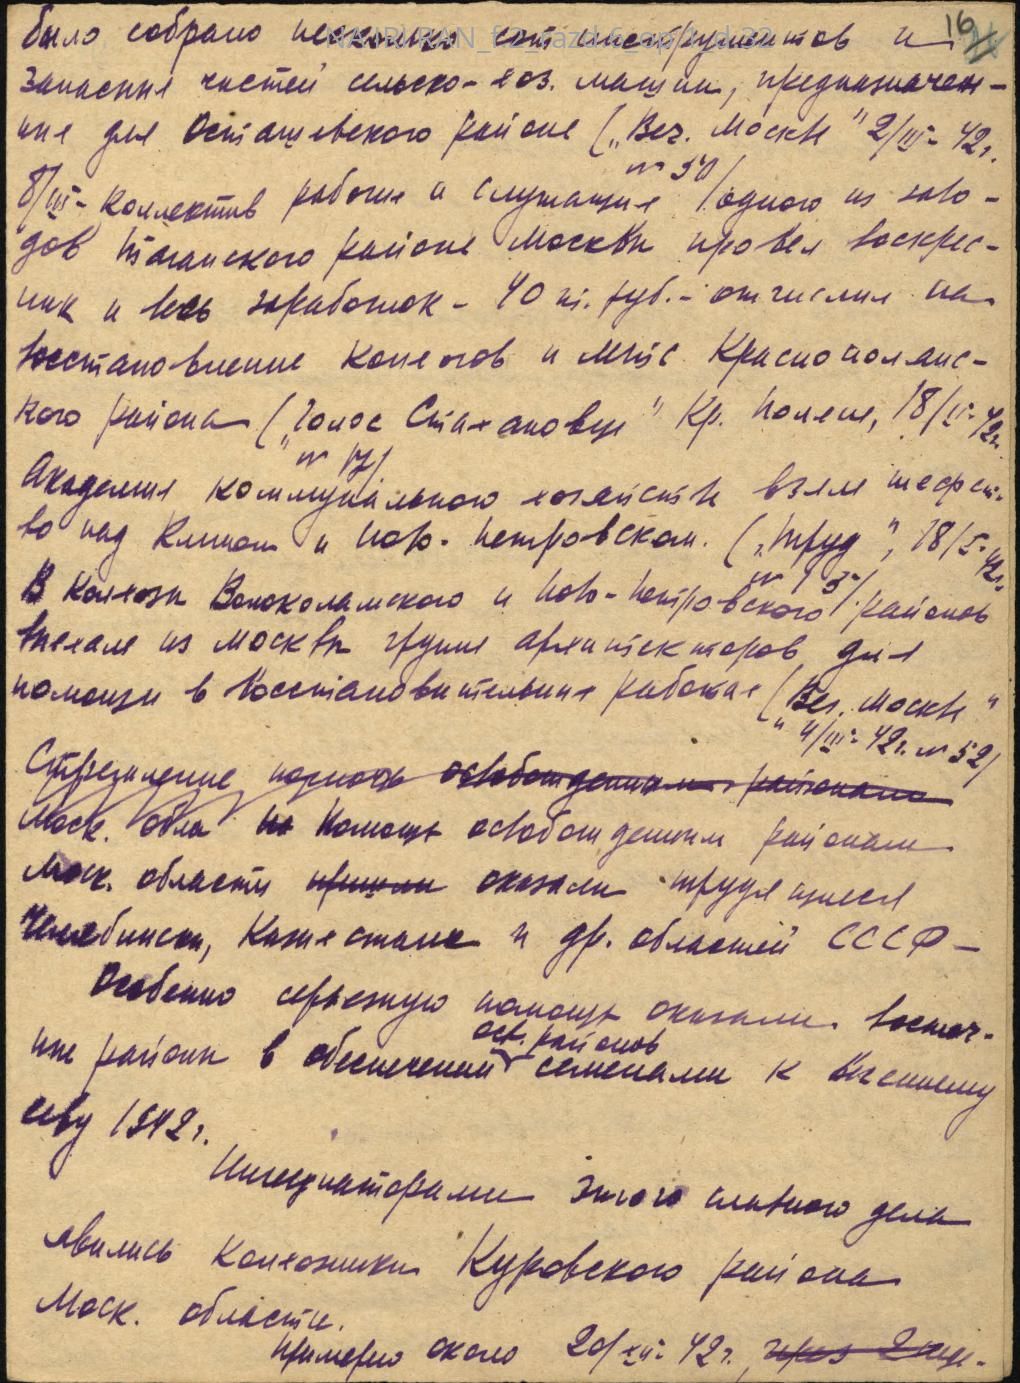 16
было собрано несколько сот инструментов и
запасных частей сельско-хоз. машин, предназначен-
ные для Осташевского района („Веч. Москва" 2/III-42г.
№ 50/
8/III- коллектив рабочих и служащих одного из заво-
дов Таганского района Москвы провел воскрес-
ник и весь заработок - 40 т. руб. - отчислил на
восстановление колхозов и МТС Краснополянс-
кого района („Голос Стахановца" Кр. Поляна, 18/II-42г.
№ 17/
Академия коммунального хозяйства взяла шефст-
во над Клином и Ново-Петровском. („Труд", 18/I-42г.
В колхозы Волоколамского и Ново-Петровского районов
выехала из Москвы группа архитекторов для
помощи в восстановительных работах („Веч. Москва"
4/III-42г. № 52/
Стремление помочь освобожденным районам
Моск. обла Помощь освобожденным районам
Моск. области пришли оказали трудящиеся
Челябинска, Казахстана и др. областей СССР -
Особенно серьезную помощь оказали восточ-
ные районы в обеспечении осв. районов семенами к весеннему
севу 1942г.
Инициаторами этого славного дела
явились колхозники Куровского района
Моск. области.
Примерно около 20/XII-42г., через 2